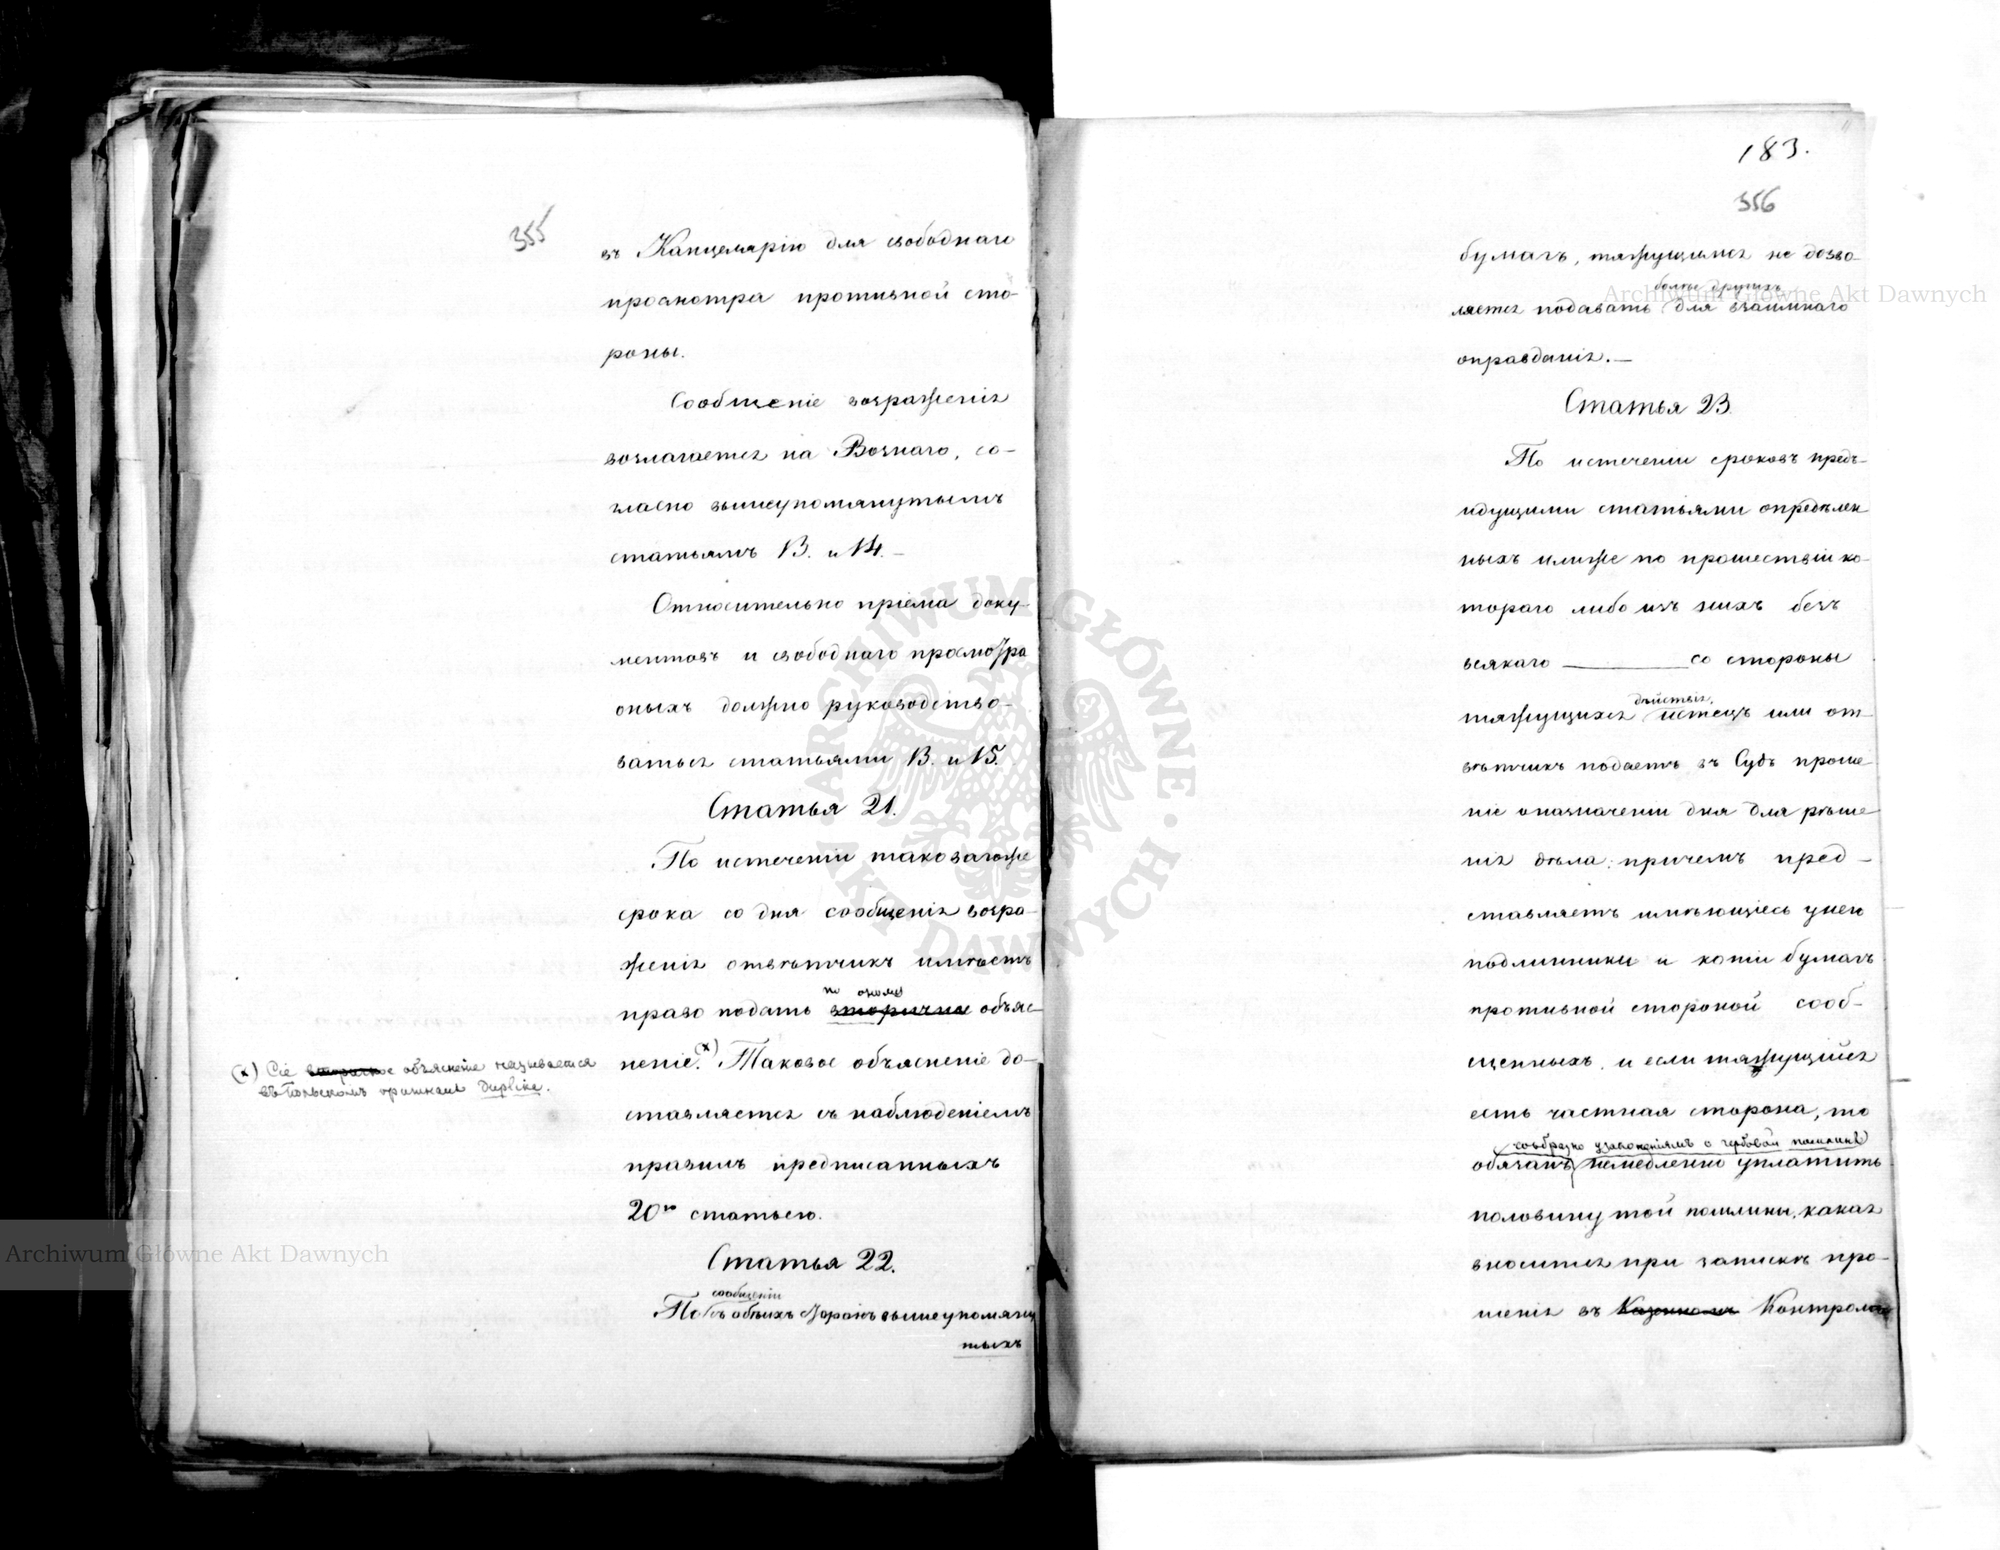 355
въ Канцелярію для свободнаго
просмотра противной сто-
роны.
Сообщеніе возраженія
возлагается на Вознаго, со-
гласно вышеупомянутымъ
статьямъ 13. и 14. -
Относительно пріема доку-
ментовъ и свободнаго просмотра
оныхъ должно руководство-
ваться статьями 13. и 15.
Статья 21.
По истеченіи таковагоже
срока со дня сообщенія возра-
женія отвѣтчикъ имѣетъ
по оному
право подать вторичное объяс-
неніе. (*) Таковое объясненіе до-
ставляется съ наблюденіемъ
правилъ предписанныхъ
20ю статьею.
(*) Сіе вторичное объясненіе называется
въ Польскомъ оригиналѣ Duplika.
Статья 22.
сообщеніи
По съ обѣихъ сторонъ вышеупомяну
тыхъ
183.
356
бумагъ, тяжущимся не дозво-
болѣе другихъ
ляется подавать для взаимнаго
оправданія. —
Статья 23.
По истеченіи сроковъ предъ-
идущими статьями опредѣлен
ныхъ илиже по прошествіи ко-
тораго либо изъ нихъ безъ
всякаго ——— со стороны
дѣйствія
тяжущихся истецъ или от-
вѣтчикъ подаетъ въ Судъ проше
ніе о назначеніи дня для рѣше
нія дѣла: причемъ пред-
ставляетъ имѣющіесь у него
подлинники и копіи бумагъ
противной стороной сооб-
щенныхъ, и если тяжущійся
есть частная сторона, то
сообразно узаконеніямъ о гербовой пошлинѣ
обязанъ немедленно уплатить
половину той пошлины, какая
вносится при запискѣ про-
шенія въ Казенномъ Контроль
Archiwum Główne Akt Dawnych
Archiwum Główne Akt Dawnych
ARCHIWUM GŁÓWNE · AKT DAWNYCH ·